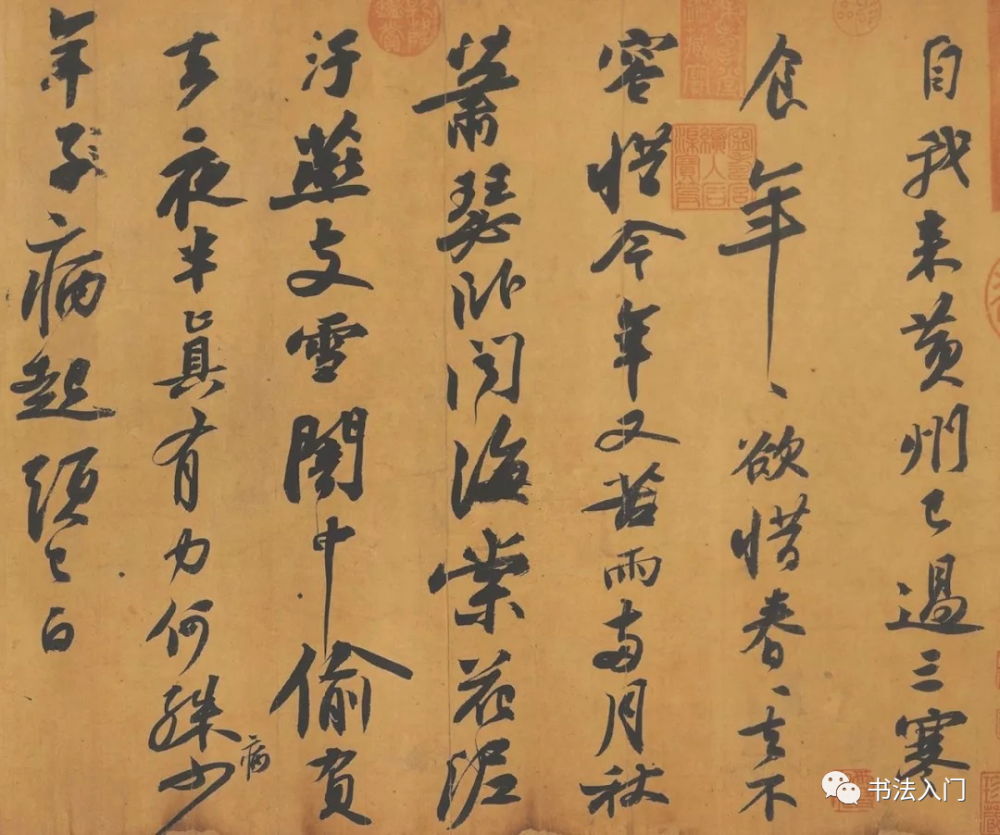 自我来黄州已過三寒
食年〻欲惜春〻去不
容惜今年又苦雨兩月秋
蕭瑟卧聞海棠花泥
汙燕支雪闇中偷負
去夜半真有力何殊少
病
年子病起頭已白
书法入门